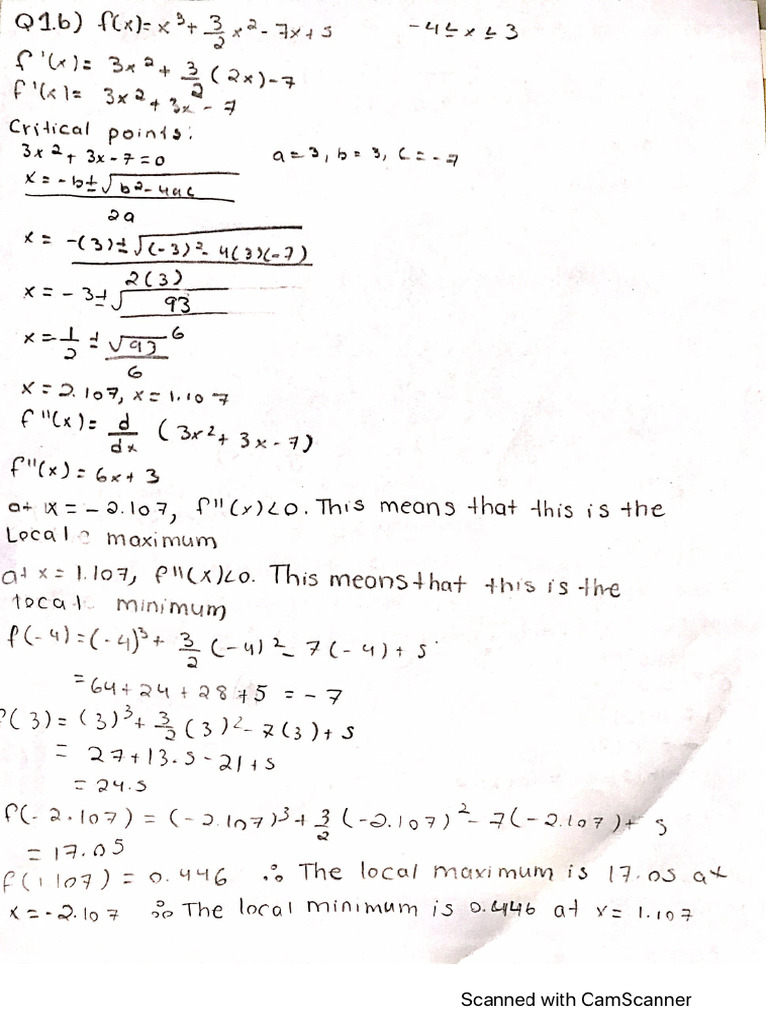 Q1.b) f(x)= x³ + 3/2 x² - 7x + 5 -4 ≤ x ≤ 3
f'(x)= 3x² + 3/2 (2x) - 7
f'(x)= 3x² + 3x - 7
Critical points:
3x² + 3x - 7 = 0 a = 3, b = 3, c = -7
x = -b ± √b² - 4ac / 2a
x = -(3) ± √(-3)² - 4(3)(-7) / 2(3)
x = -3 ± √93 / 6
x = -1/2 ± √93 / 6
x = 2.107, x = 1.107
f"(x) = d/dx (3x² + 3x - 7)
f"(x) = 6x + 3
at x = -2.107, f"(x) < 0. This means that this is the
Local maximum
at x = 1.107, f"(x) < 0. This means that this is the
local minimum
f(-4) = (-4)³ + 3/2 (-4)² - 7(-4) + 5
= 64 + 24 + 28 + 5 = -7
f(3) = (3)³ + 3/2 (3)² - 7(3) + 5
= 27 + 13.5 - 21 + 5
= 24.5
f(-2.107) = (-2.107)³ + 3/2 (-2.107)² - 7(-2.107) + 5
= 17.05
f(1.107) = 0.446 ∴ The local maximum is 17.05 at
x = -2.107 ∴ The local minimum is 0.446 at x = 1.107
Scanned with CamScanner